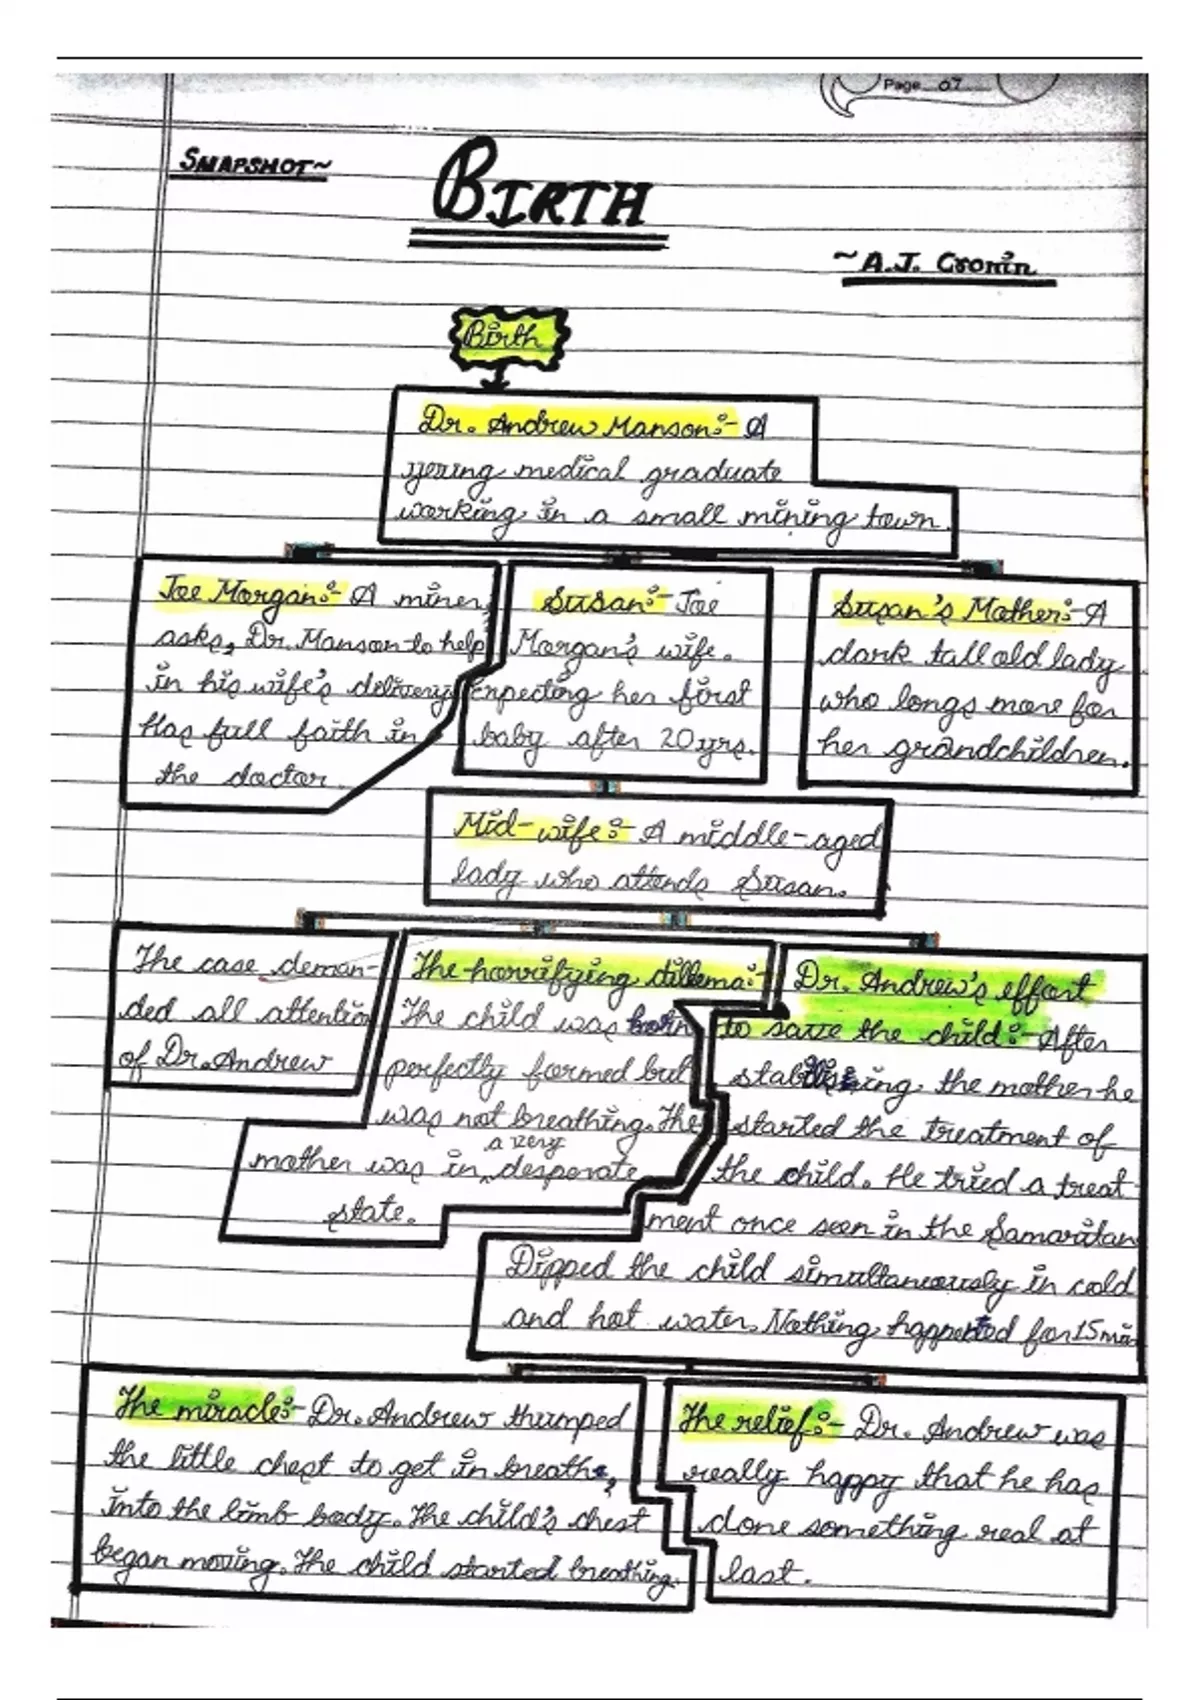 Page 07
SNAPSHOT~
BIRTH
~A.J. Cronin
Birth
Dr. Andrew Manson:- A
young medical graduate
working in a small mining town.
Joe Morgan:- A miner,
asks, Dr. Manson to help
in his wife's delivery
Has full faith in
the doctor.
Susan:- Joe
Morgan's wife.
Expecting her first
baby after 20 yrs.
Susan's Mother:- A
dark tall old lady
who longs more for
her grandchildren.
Mid-wife:- A middle-aged
lady who attends Susan.
The case deman-
ded all attention
of Dr. Andrew
The horrifying dillema:-
The child was born
perfectly formed but
was not breathing. The
mother was in a very desperate
state.
Dr. Andrew's effort
to save the child:- After
stabilising the mother he
started the treatment of
the child. He tried a treat-
ment once seen in the Samaritan
Dipped the child simultaneously in cold
and hot water. Nothing happented for 15 min
The miracle:- Dr. Andrew thumped
the little chest to get in breath,
into the limb body. The child's chest
began moving. The child started breathing.
The relief:- Dr. Andrew was
really happy that he has
done something real at
last.